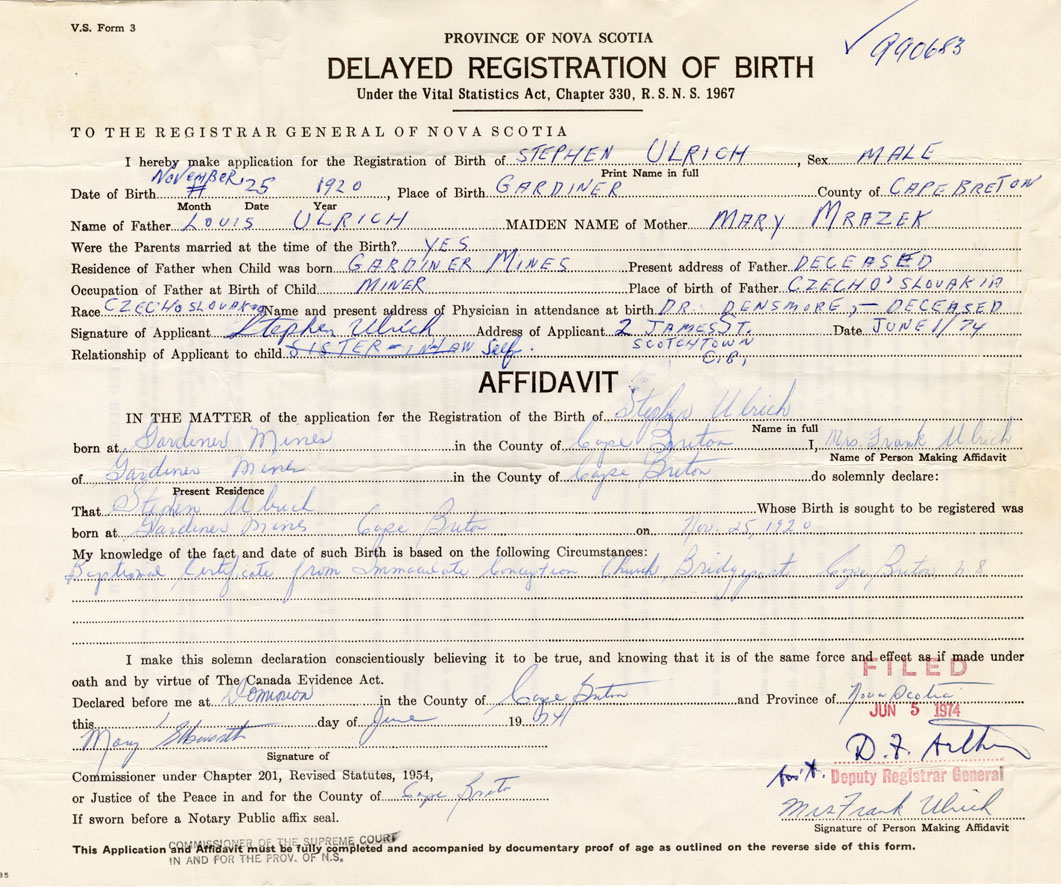 V.S. Form 3
✓ 990683
PROVINCE OF NOVA SCOTIA
DELAYED REGISTRATION OF BIRTH
Under the Vital Statistics Act, Chapter 330, R.S.N.S. 1967
TO THE REGISTRAR GENERAL OF NOVA SCOTIA
I hereby make application for the Registration of Birth of STEPHEN ULRICH, Sex MALE
Print Name in full
Date of Birth NOVEMBER 25 1920, Place of Birth GARDINER County of CAPE BRETON
Month Date Year
Name of Father LOUIS ULRICH MAIDEN NAME of Mother MARY MRAZEK
Were the Parents married at the time of the Birth? YES
Residence of Father when Child was born GARDINER MINES Present address of Father DECEASED
Occupation of Father at Birth of Child MINER Place of birth of Father CZECHO'SLOVAKIA
Race CZECHOSLOVAKIA Name and present address of Physician in attendance at birth DR. DENSMORE, - DECEASED
Signature of Applicant Stephen Ulrich Address of Applicant 2 JAMES ST. Date JUNE 1/74
SCOTCHTOWN
C.B.
Relationship of Applicant to child SISTER-IN-LAW Self.
AFFIDAVIT
IN THE MATTER of the application for the Registration of the Birth of Stephen Ulrich
Name in full
born at Gardiner Mines in the County of Cape Breton I, Mrs. Frank Ulrich
Name of Person Making Affidavit
of Gardiner Mines in the County of Cape Breton do solemnly declare:
Present Residence
That Stephen Ulrich Whose Birth is sought to be registered was
born at Gardiner Mines Cape Breton on Nov. 25, 1920
My knowledge of the fact and date of such Birth is based on the following Circumstances:
Baptismal Certificate from Immaculate Conception Church, Bridgeport Cape Breton N.S.
I make this solemn declaration conscientiously believing it to be true, and knowing that it is of the same force and effect as if made under
oath and by virtue of The Canada Evidence Act.
FILED
Declared before me at Dominion in the County of Cape Breton and Province of Nova Scotia
this 1 day of June 1974
JUN 5 1974
Mary
Signature of
D. F. Arthur
Ass't. Deputy Registrar General
Commissioner under Chapter 201, Revised Statutes, 1954,
or Justice of the Peace in and for the County of Cape Breton
Mrs Frank Ulrich
Signature of Person Making Affidavit
If sworn before a Notary Public affix seal.
COMMISSIONER OF THE SUPREME COURT
This Application and Affidavit must be fully completed and accompanied by documentary proof of age as outlined on the reverse side of this form.
IN AND FOR THE PROV. OF N.S.